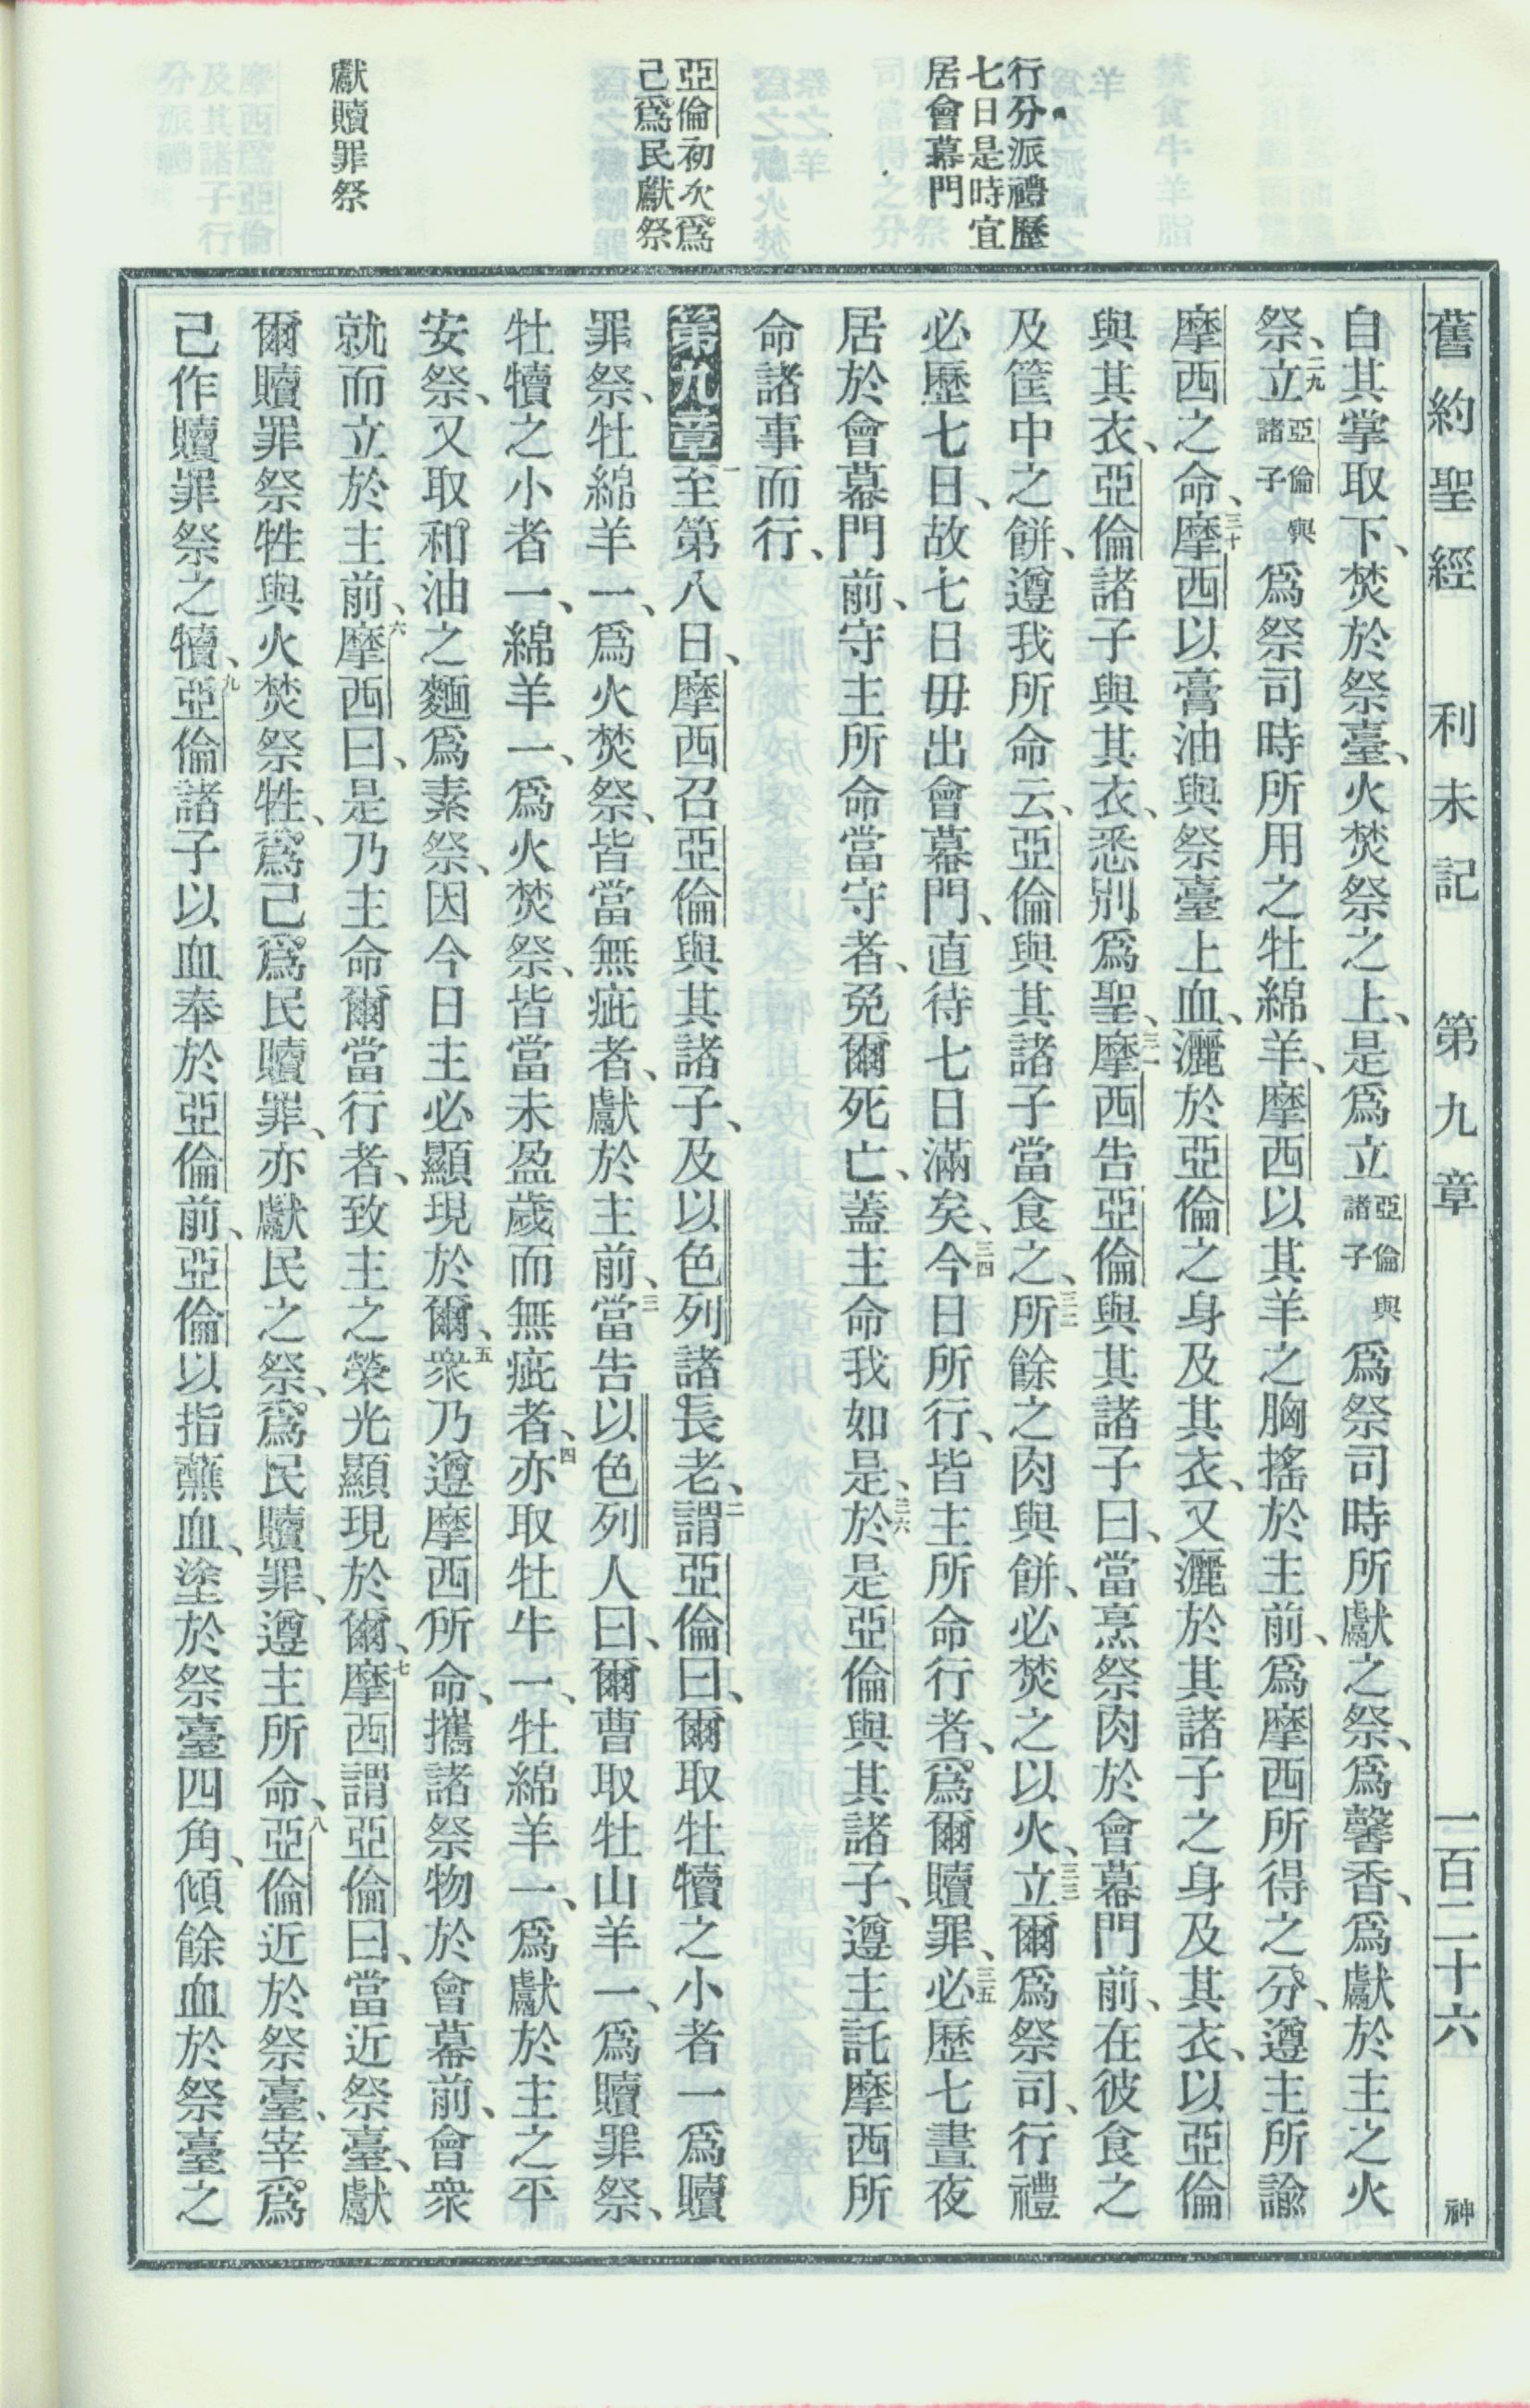 舊約聖經 利未記 第九章 一百二十六 神
行分派禮歷
七日是時宜
居會幕門
亞倫初次爲
己爲民獻祭
獻贖罪祭
自其掌取下、焚於祭臺、火焚祭之上、是爲立亞倫與諸子爲祭司時所獻之祭、爲馨香、爲獻於主之火
祭、二九立亞倫與諸子爲祭司時所用之牡綿羊、摩西以其羊之胸搖於主前、爲摩西所得之分、遵主所諭
摩西之命、三十摩西以膏油與祭臺上血、灑於亞倫之身及其衣、又灑於其諸子之身及其衣、以亞倫
與其衣、亞倫諸子與其衣、悉別爲聖、三一摩西告亞倫與其諸子曰、當烹祭肉於會幕門前、在彼食之
及筐中之餅、遵我所命云、亞倫與其諸子當食之、三二所餘之肉與餅、必焚之以火、三三立爾爲祭司、行禮
必歷七日、故七日毋出會幕門、直待七日滿矣、三四今日所行、皆主所命行者、爲爾贖罪、三五必歷七晝夜
居於會幕門前、守主所命當守者、免爾死亡、蓋主命我如是、三六於是亞倫與其諸子、遵主託摩西所
命諸事而行、
第九章一至第八日、摩西召亞倫與其諸子、及以色列諸長老、二謂亞倫曰、爾取牡犢之小者一爲贖
罪祭、牡綿羊一、爲火焚祭、皆當無疵者、獻於主前、三當告以色列人曰、爾曹取牡山羊一、爲贖罪祭、
牡犢之小者一、綿羊一、爲火焚祭、皆當未盈歲而無疵者、四亦取牡牛一、牡綿羊一、爲獻於主之平
安祭、又取和油之麵爲素祭、因今日主必顯現於爾、五衆乃遵摩西所命、攜諸祭物於會幕前、會衆
就而立於主前、六摩西曰、是乃主命爾當行者、致主之榮光顯現於爾、七摩西謂亞倫曰、當近祭臺、獻
爾贖罪祭牲與火焚祭牲、爲己爲民贖罪、亦獻民之祭、爲民贖罪、遵主所命、八亞倫近於祭臺、宰爲
己作贖罪祭之犢、九亞倫諸子以血奉於亞倫前、亞倫以指蘸血、塗於祭臺四角、傾餘血於祭臺之